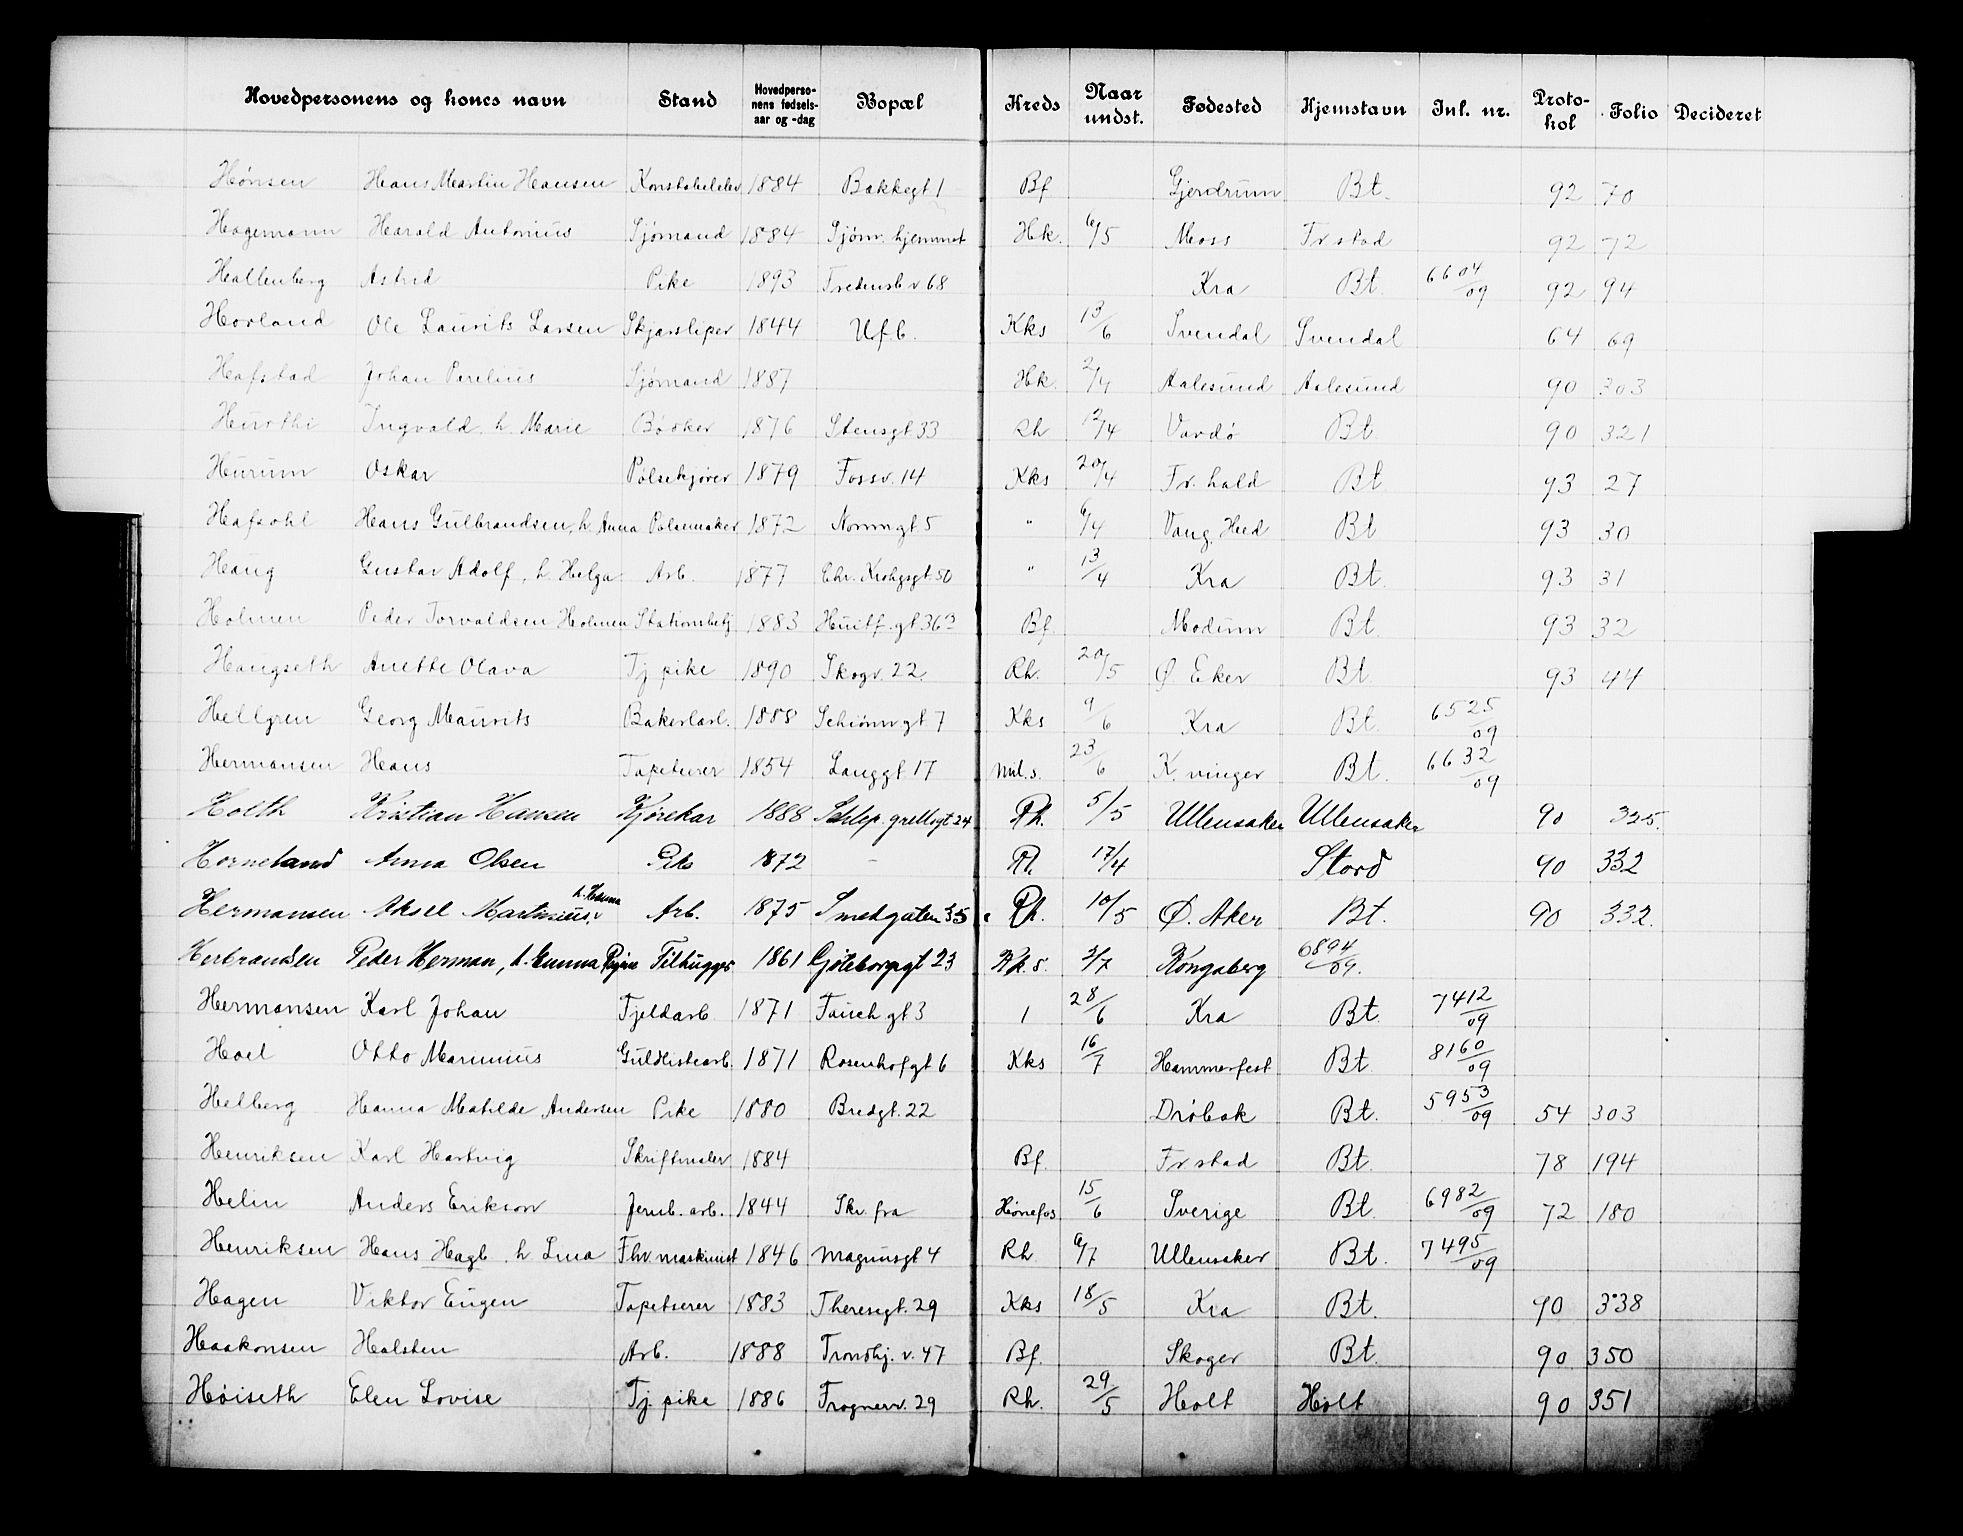 Hovedpersonens og kones navn Stand Hovedperso-nens fødsels-aar og -dag Bopæl Kreds Naar undst. Fødested Hjemstavn Inf. nr. Proto-kol Folio Decideret
Hønsen Hans Martin Hansen Konstabelelev 1884 Bakkegt 1 Bf. Gjerdrum Bt. 92 70
Hagemann Harald Antonius Sjømand 1884 Sjøm. hjemmet Hk. 6/5 Moss Fr.stad 92 72
Hallenberg Astrid Pike 1893 Fredensb.v 68 Kra Bt. 6604/09 92 94
Hovland Ole Laurits Larsen Skjærsliper 1844 Uf.b. Kks 13/6 Svendal Svendal 64 69
Hafstad Johan Parelius Sjømand 1887 Hk. 2/4 Aalesund Aalesund 90 303
Ingvald, h. Marie Bødker 1876 Stensgt 33 Rh 12/4 Vardø Bt. 90 321
Hurum Oskar Pølsekjører 1879 Fossv. 14 Kks 20/4 Fr. hald Bt 93 27
Hans Gulbrandsen, h. Anna Pølsemaker 1872 Normgt 5 " 6/4 Vang, Hed Bt 93 30
Haug Gustav Adolf, h. Helga Arb. 1877 Chr. Krohgsgt. 50 " 13/4 Kra Bt. 93 31
Holmen Peder Torvaldsen Holmen Stationsbetj 1883 Huitf. gt 36 Bf. Modum Bt. 93 32
Haugseth Anette Olava Tj. pike 1890 Skogv. 22 Rh. 20/5 Ø Eker Bt. 93 44
Hellgren Georg Maurits Bakerlærl. 1888 Schiønn gt 7 Kks 9/6 Kra Bt. 6525/09
Hermansen Hans Tapetserer 1854 Langgt 17 Mil.s. 23/6 K. vinger Bt. 6632/09
Holth Kristian Hansen Kjørekar 1888 Schlep. grellsgt 24 Rh. 5/5 Ullensaker Ullensaker 90 325.
Horneland Anna Olsen Pike 1872 - Rh. 17/4 Stord 90 332
Hermansen Aksel Martinius, Arb. 1875 Smedgaten 35 Rh. 10/5 Ø. Aker Bt. 90 332.
Herbrandsen Peder Herman, h. Gunna Tilhugger 1861 Gøteborggt 23 Kk.s. 2/7 Kongsberg 6894/09.
Hermansen Karl Johan Fjeldarb. 1871 Fauch.gt 3 1 28/6 Kra Bt. 7412/09
Hoel Otto Marinius Guldlistearb. 1871 Rosenhofgt 6 Kks 16/7 Hammerfest Bt. 8160/09
Helberg Hanna Matilde Andersen Pike 1880 Bredgt. 22 Drøbak Bt. 5953/09 54 303
Henriksen Karl Hartvig Skriftmaler 1884 Bf. Fr stad Bt. 78 194
Helin Anders Erikson Jernb. arb. 1844 Skr. fra Hønefos 15/6 Sverige Bt. 6982/09 72 180
Henriksen Hans Hagb. h. Lina Fhv. maskinist 1846 Magnusgt 4 Rh. 6/7 Ullensaker Bt. 7495/09
Hagen Viktor Eugen Tapetserer 1883 Theresegt. 29 Kks 18/5 Kra Bt. 90 338
Haakonsen Halsten Arb. 1888 Trondhj. v. 47 Bf. Skoger Bt. 90 350
Høiseth Elen Lovise Tj. pike 1886 Frognerv. 29 Rh. 29/5 Holt Holt 90 351